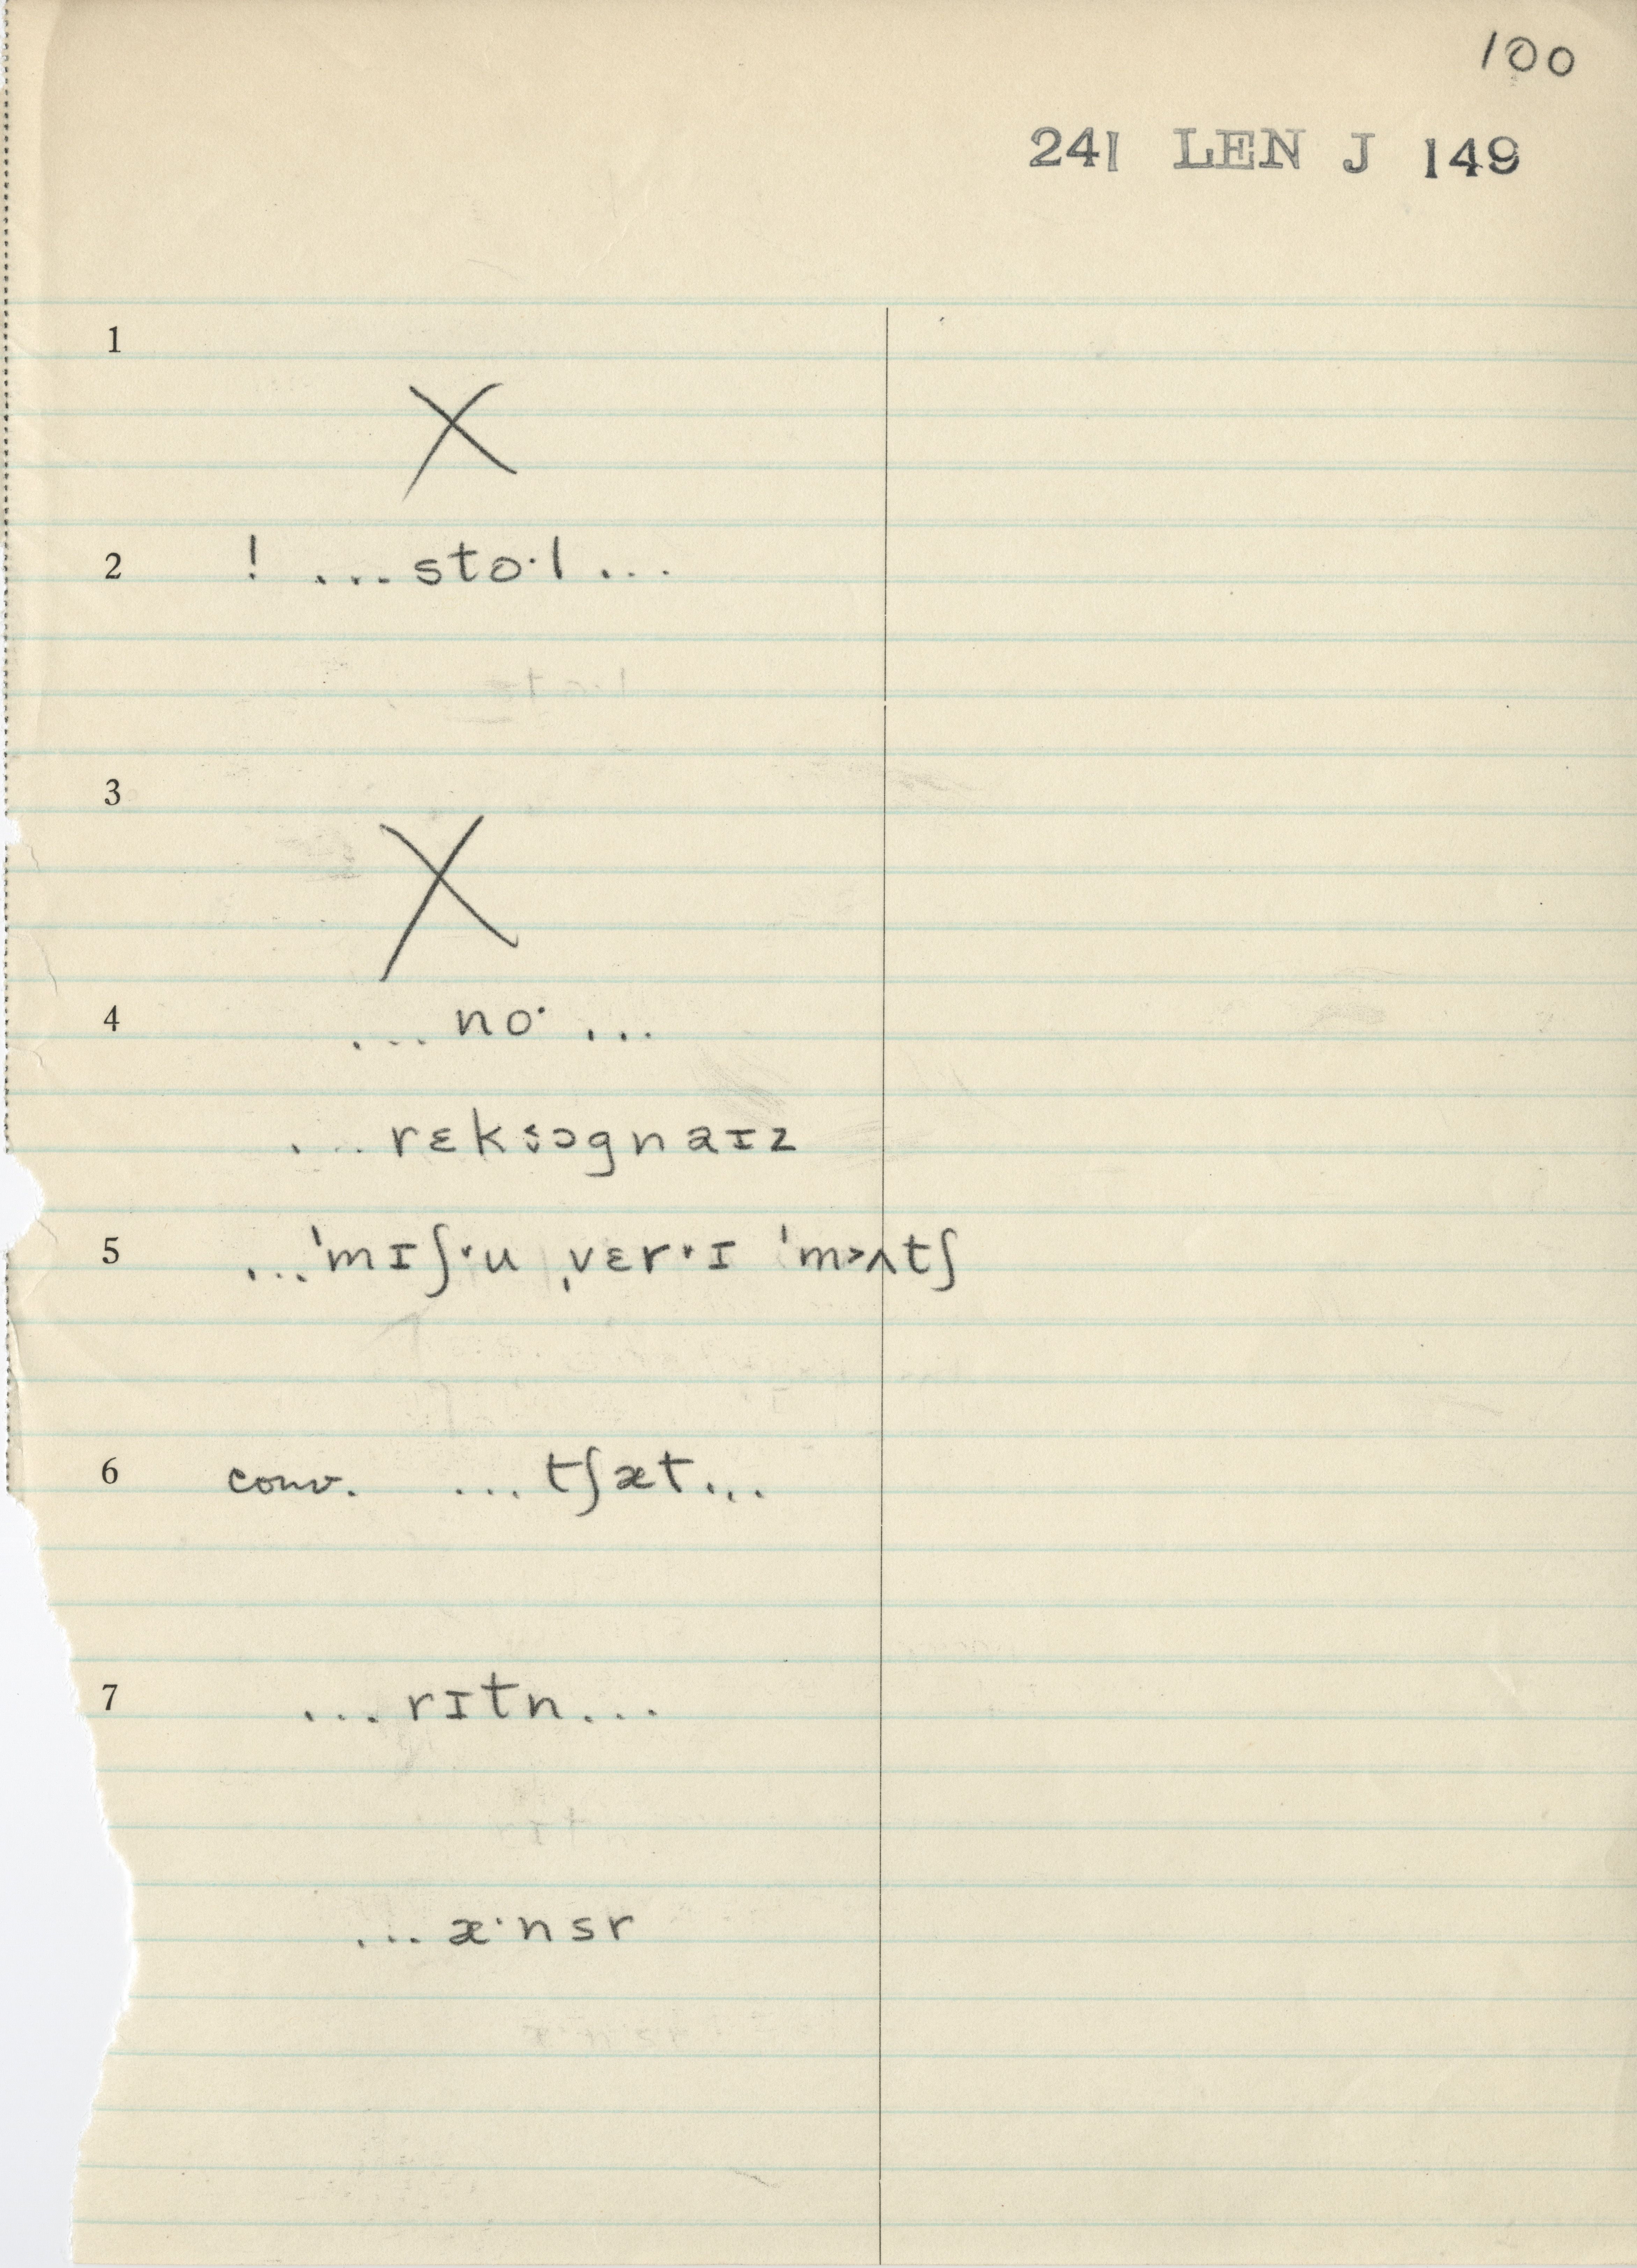 100
241 LEN J 149
1
X
2 ! ...stoˑl...
3
X
4 ...noˑ...
...rɛksɔgnaɪz
5 ...ˈmɪʃˑu ˌvɛrˑɪ ˈm˃ʌtʃ
6 conv. ...tʃæt...
7 ...rɪtn...
...æˑnsr